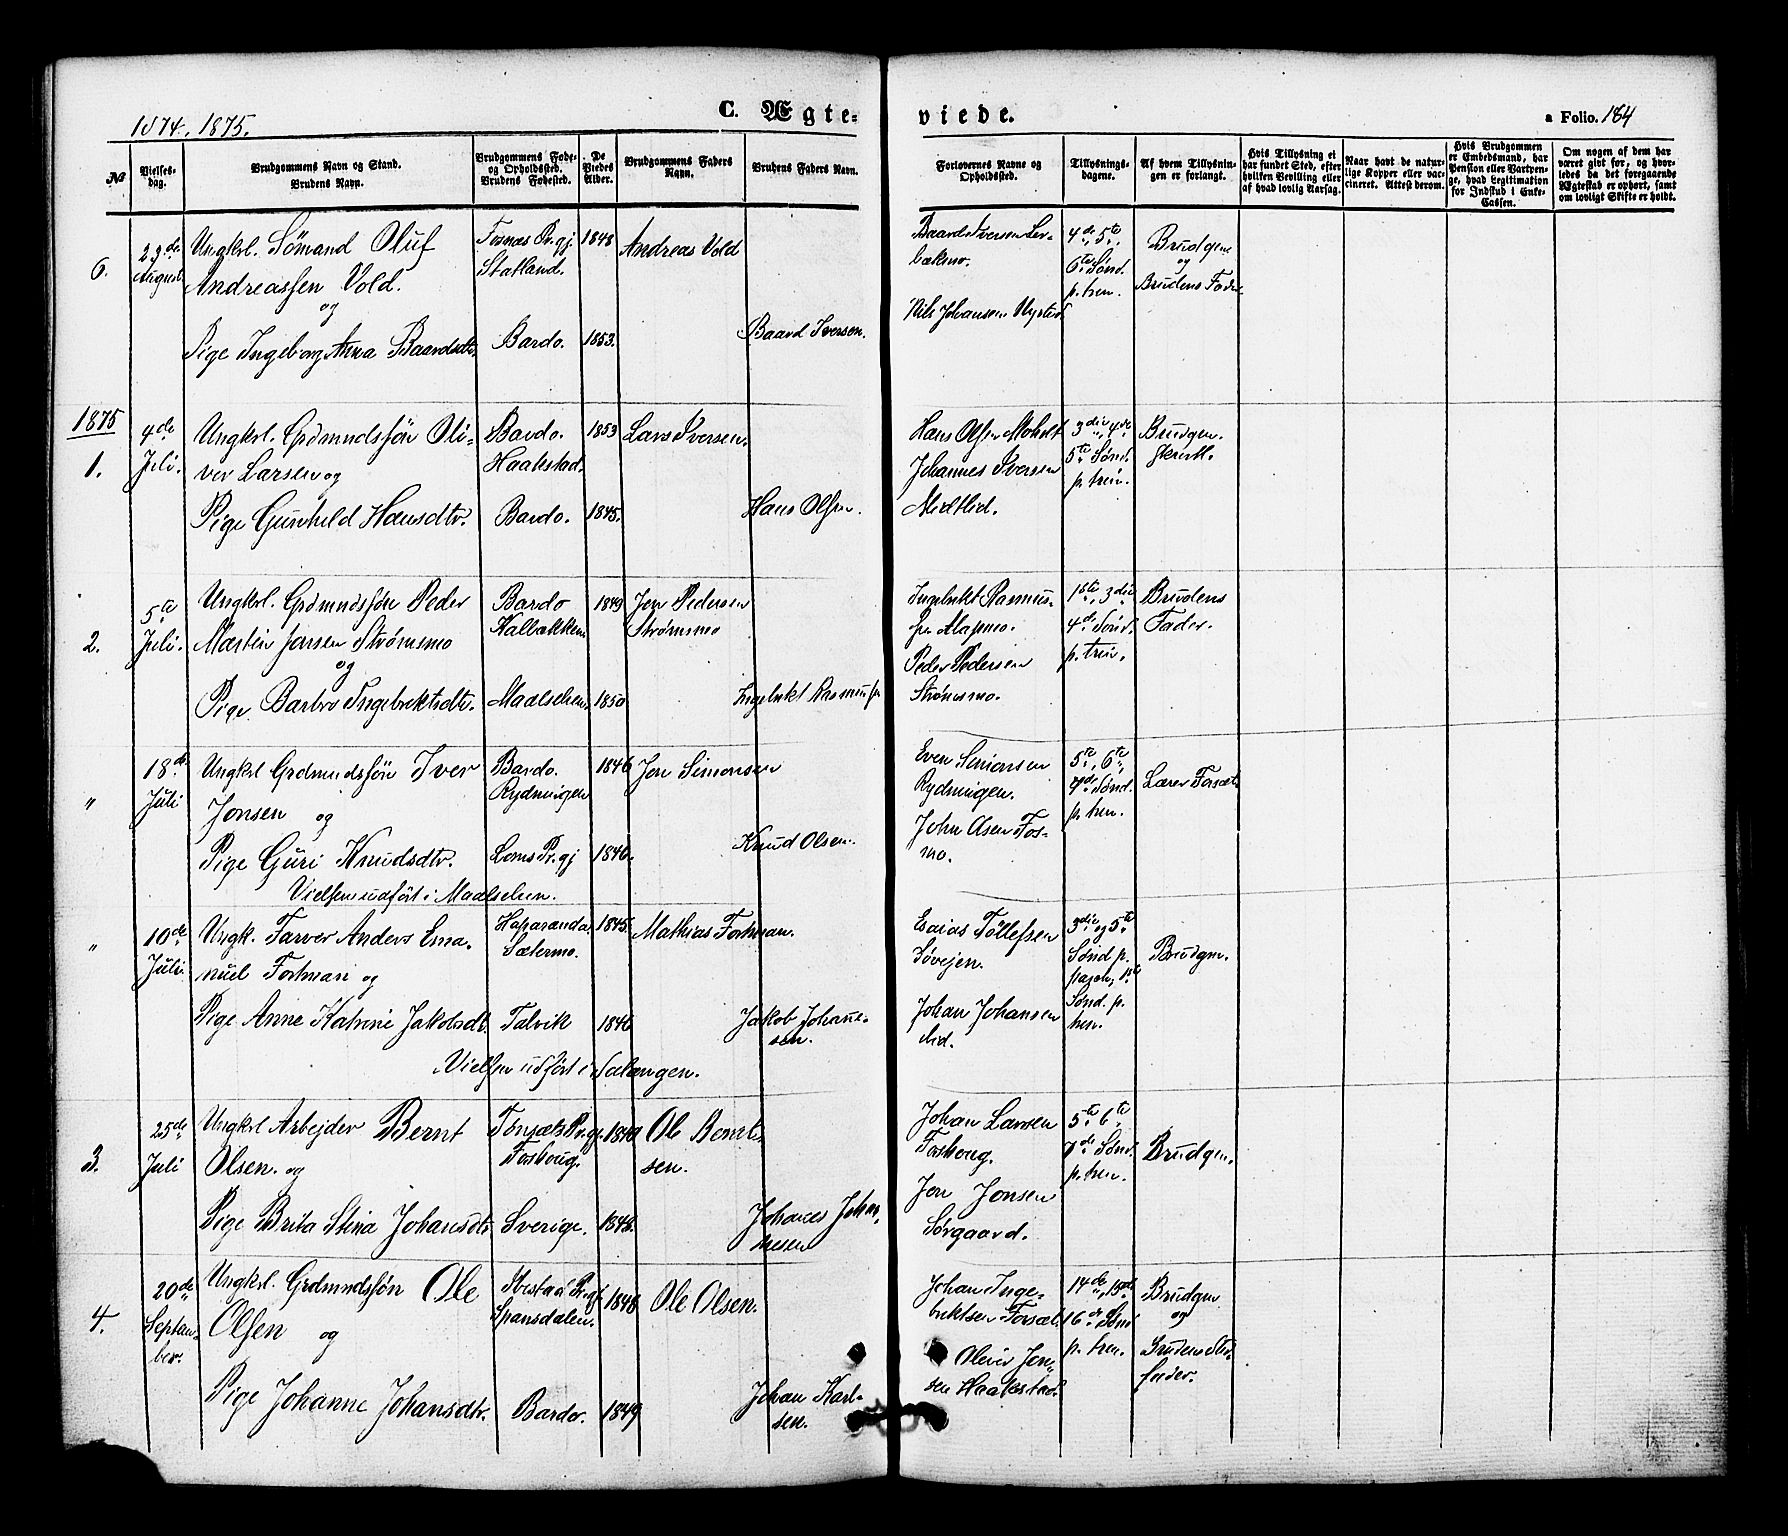 1874, 1875.
C. Ægte-
viede.
a Folio. 184
No
Vielses-
dag.
Brudgommens Navn og Stand.
Brudens Navn.
Brudgommens Føde-
og Opholdssted.
Brudens Fødested.
De
Viedes
Alder.
Brudgommens Faders
Navn.
Brudens Faders Navn.
Forlovernes Navne og
Opholdssted.
Tillysnings-
dagene.
Af hvem Tillysnin-
gen er forlangt.
Hvis Tillysning ei
har fundet Sted, efter
hvilken Bevilling eller
af hvad lovlig Aarsag.
Naar havt de natur-
lige Kopper eller vac-
cineret. Attest derom.
Hvis Brudgommen
er Embedsmand, har
Pension eller Vartpen-
ge, hvad Legitimation
for Indskud i Enke-
Cassen.
Om nogen af dem har
været gift før, og hvor-
ledes da det foregaaende
Ægteskab er ophørt, samt
om lovligt Skifte er holdt.
6.
29de
August
Ungkrl. Sømand Oluf
Andreassen Vold.
og
Pige Ingeborg Anna Baardsdtr.
Fosnæs Pr.gj.
Statland.
Bardo.
1848
1853.
Andreas Vold
Baard Iversen.
Baard Iversen
bæksmo.
Nils Johansen Nysted
4de, 5te
6te Sønd.
p. tren.
Brudgme
og
Brudens Fader
1875
1.
4de
Juli.
Ungkrl. Grdmndssøn Oli-
ver Larsen og
Pige Gunhild Hansdtr.
Bardo.
Haakstad.
Bardo.
1853
1845.
Lars Iversen.
Hans Olsen.
Hans Olsen Moholt
Johannes Iversen
Nedtlid.
3die, 4de
5te Sønd.
p. tren.
Brudgm.
skriftl.
2.
5te
Juli.
Ungkrl. Grdmndssøn Peder
Martin Jonsen Strømsmo
og
Pige Barbro Ingebrektsdtr.
Bardo
Kalbækken
Maalselven.
1849
1850
Jon Pedersen
Strømsmo
Ingebrekt Rasmussen
Ingebrekt Rasmus-
sen Alapmo.
Peder Pedersen
Strømsmo.
1ste, 3die
4de Sønd.
p. tren.
Brudens
Fader.
"
18de
Juli
Ungkrl Grdmndssøn Iver
Jonsen og
Pige Guri Knudsdtr.
Vielsen udført i Maalselven.
Bardo.
Rydningen
Loms Pr.gj
1846
1846.
Jon Simonsen
Knud Olsen.
Even Simonsen
Rydningen.
John Olsen Fos-
mo.
5te, 6te
7de Sønd.
p. tren.
Lærer Forsæt
"
10de
Juli.
Ungk. Farver Anders Ema-
nuel Fortman og
Pige Anne Katrine Jakobsdt.
Vielsen udført i Salangen.
Haparanda.
Sætermo.
Talvik
1845.
1846
Mathias Fortman.
Jakob Johan-
sen.
Esaias Tollefsen
Løvejen.
Johan Johansen
Lid.
3die og 5te
Sønd p.
pasch, 1ste
Sønd. p.
tren.
Brudgm.
3.
25de
Juli
Ungkrl Arbejder Bernt
Olsen. og
Pige Brita Stina Johansdtr
Fosnæs Pr.gj.
Fosboug.
Sverige.
1840
1848.
Ole Bernt-
sen.
Johanes Johan-
nesen
Johan Larsen
Fosboug.
Jon Jonsen
Sørgaard.
5te 6te
7de Sønd.
p. tren.
Brudgm.
4.
20de
Septem-
ber.
Ungkrl. Grdmndssøn Ole
Olsen og
Pige Johanne Johansdtr.
Ibestad Pr.gj.
Spansdalen.
Bardo.
1848
1849
Ole Olsen.
Johan Karl-
sen.
Johan Inge-
brektsen Forsæt.
Oliver Jen-
sen Haakstad.
14de, 15de
16de Sønd
p. tren.
Brudgm
og
Brudens Stif-
fader.